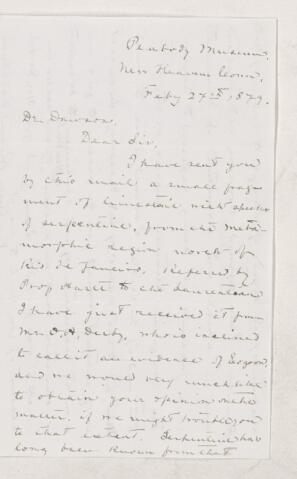 Peabody Museum,
New Haven Conn,
Feby 27th, 1879.
Dr. Dawson,
Dear Sir,
I have sent you
by this mail a small frag-
ment of limestone with specks
of serpentine, from the meta-
morphic region north of
Rio de Janeiro. Referred by
Prof Hartt to the Laurentian
I have just received it from
Mr. O. A. Derby, who is inclined
to call it an evidence of Eozoon,
and we would very much like
to obtain your opinion on the
matter, if we might trouble you
to that extent. Serpentine has
long been known from that